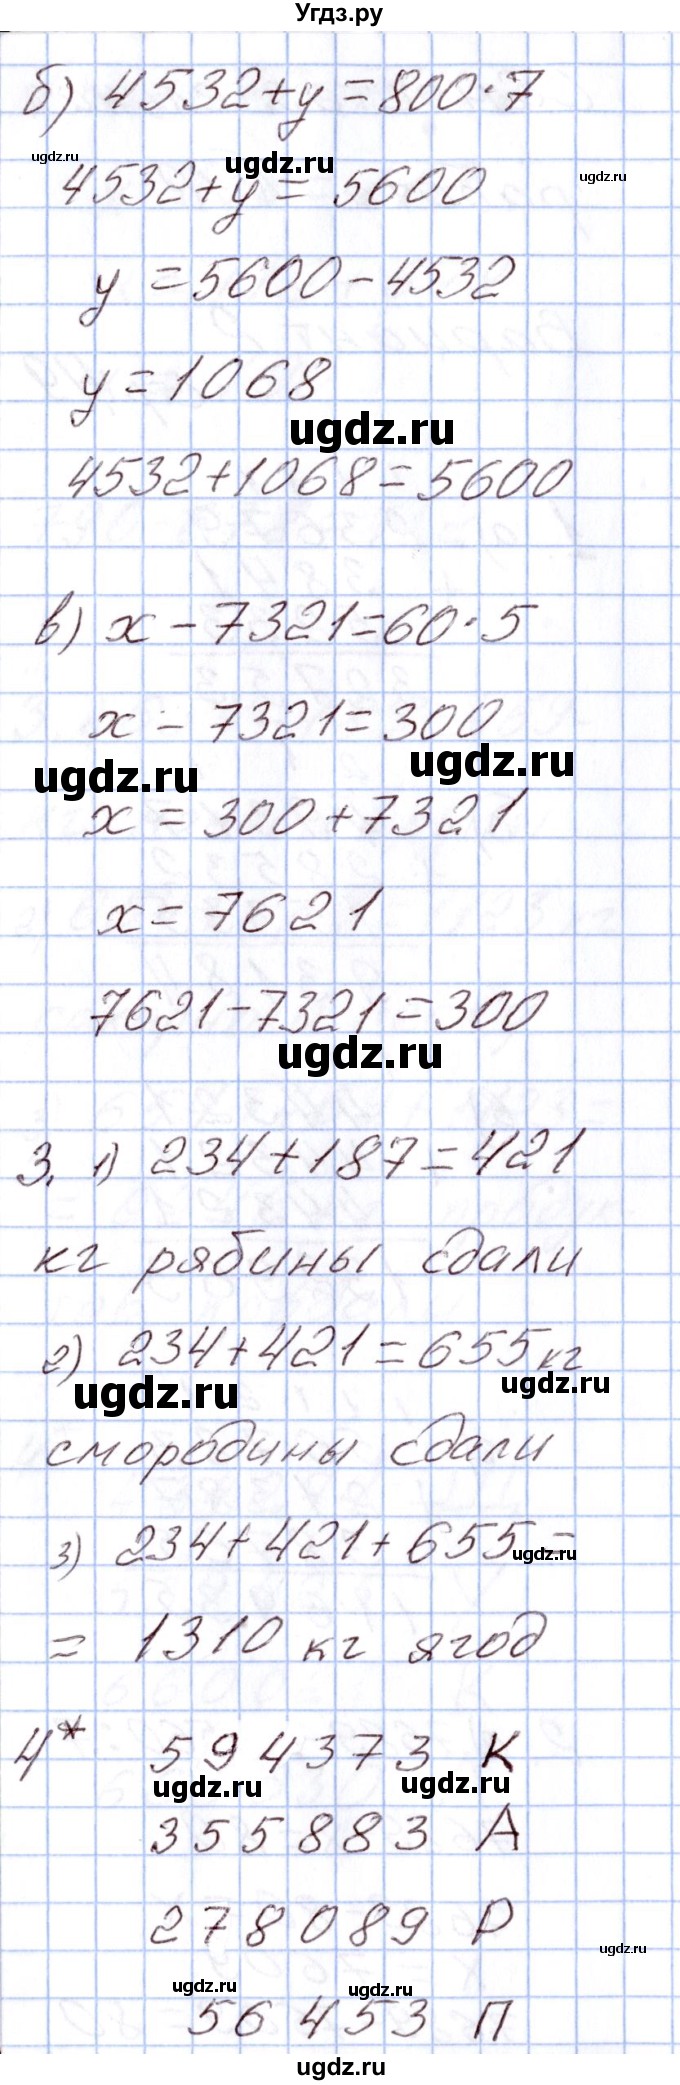 Угдз.ру
б) 4532+y=800·7
ugdz.ru
ugdz.ru
ugdz.ru
4532+y=5600
y=5600-4532
y=1068
ugdz.ru
4532+1068=5600
в) x-7321=60·5
x-7321=300
ugdz.ru
ugdz.ru
x=300+7321
x=7621
7621-7321=300
ugdz.ru
3. 1) 234+187=421
кг рябины сдали
2) 234+421=655 кг
ugdz.ru
ugdz.ru
смородины сдали
3) 234+421+655=
ugdz.ru
= 1310 кг ягод
4* 594373 К
ugdz.ru
ugdz.ru
355883 А
278089 Р
ugdz.ru
ugdz.ru
ugdz.ru
56453 П
ugdz.ru